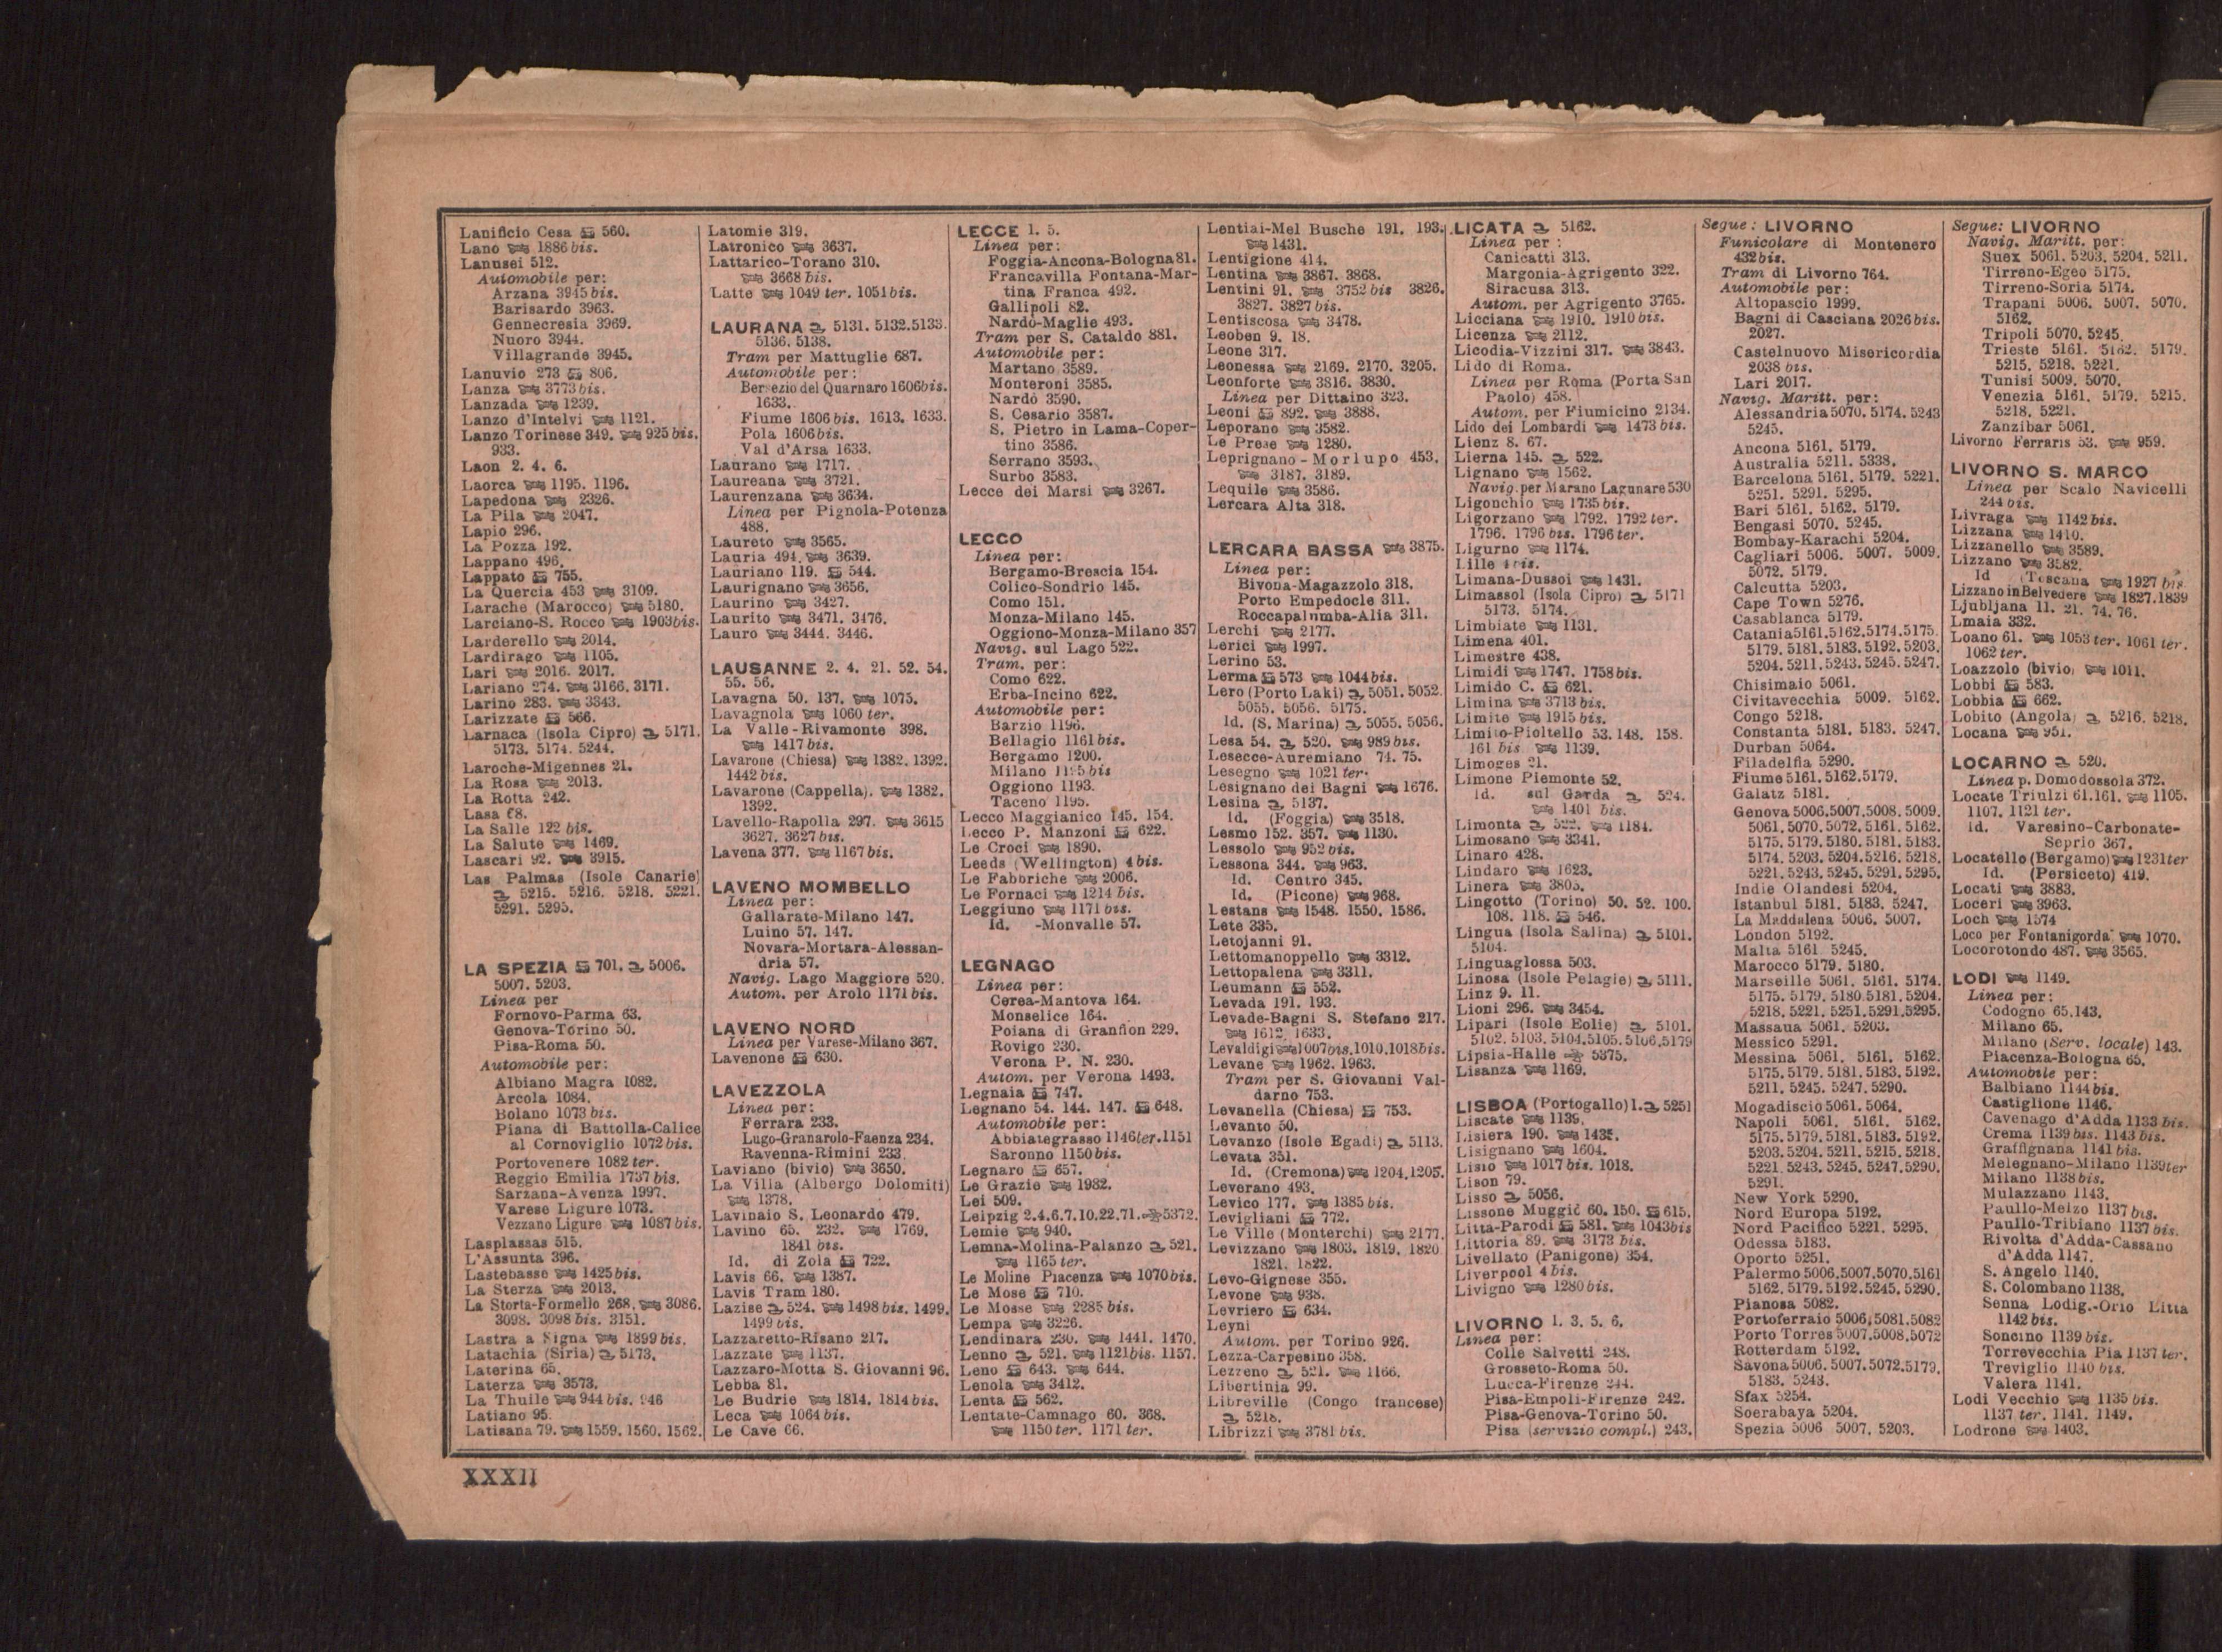 Lanificio Cesa 560.
Lano 1886 bis.
Lanusei 512.
Automobile per:
Arzana 3945 bis.
Barisardo 3963.
Gennecresia 3969.
Nuoro 3944.
Villagrande 3945.
Lanuvio 273 806.
Lanza 3773 bis.
Lanzada 1239.
Lanzo d'Intelvi 1121.
Lanzo Torinese 349. 925 bis.
933.
Laon 2. 4. 6.
Laorca 1195. 1196.
Lapedona 2326.
La Pila 2047.
Lapio 296.
La Pozza 192.
Lappano 496.
Lappato 755.
La Quercia 453 3109.
Larache (Marocco) 5180.
Larciano-S. Rocco 1903 bis.
Larderello 2014.
Lardirago 1105.
Lari 2016. 2017.
Lariano 274. 3166. 3171.
Larino 283. 3343.
Larizzate 566.
Larnaca (Isola Cipro) 5171.
5173. 5174. 5244.
Laroche-Migennes 21.
La Rosa 2013.
La Rotta 242.
Lasa 68.
La Salle 122 bis.
La Salute 1469.
Lascari 92. 3915.
Las Palmas (Isole Canarie)
5215. 5216. 5218. 5221.
5291. 5295.
LA SPEZIA 701. 5006.
5007. 5203.
Linea per
Fornovo-Parma 63.
Genova-Torino 50.
Pisa-Roma 50.
Automobile per:
Albiano Magra 1082.
Arcola 1084.
Bolano 1073 bis.
Piana di Battolla-Calice
al Cornoviglio 1072 bis.
Portovenere 1082 ter.
Reggio Emilia 1737 bis.
Sarzana-Avenza 1997.
Varese Ligure 1073.
Vezzano Ligure 1087 bis.
Lasplassas 515.
L'Assunta 396.
Lastebasse 1425 bis.
La Sterza 2013.
La Storta-Formello 268. 3086.
3098. 3098 bis. 3151.
Lastra a Signa 1899 bis.
Latachia (Siria) 5173.
Laterina 65.
Laterza 3573.
La Thuile 944 bis. 946
Latiano 95.
Latisana 79. 1559. 1560. 1562.
Latomie 319.
Latronico 3637.
Lattarico-Torano 310.
3668 bis.
Latte 1049 ter. 1051 bis.
LAURANA 5131. 5132. 5133.
5136. 5138.
Tram per Mattuglie 687.
Automobile per:
Bersezio del Quarnaro 1606 bis.
1633.
Fiume 1606 bis. 1613. 1633.
Pola 1606 bis.
Val d'Arsa 1633.
Laurano 1717.
Laureana 3721.
Laurenzana 3634.
Linea per Pignola-Potenza
488.
Laureto 3565.
Lauria 494. 3639.
Lauriano 119. 544.
Laurignano 3656.
Laurino 3427.
Laurito 3471. 3476.
Lauro 3444. 3446.
LAUSANNE 2. 4. 21. 52. 54.
55. 56.
Lavagna 50. 137. 1075.
Lavagnola 1060 ter.
La Valle-Rivamonte 398.
1417 bis.
Lavarone (Chiesa) 1382. 1392.
1442 bis.
Lavarone (Cappella). 1382.
1392.
Lavello-Rapolla 297. 3615
3627. 3627 bis.
Lavena 377. 1167 bis.
LAVENO MOMBELLO
Linea per:
Gallarate-Milano 147.
Luino 57. 147.
Novara-Mortara-Alessan-
dria 57.
Navig. Lago Maggiore 520.
Autom. per Arolo 1171 bis.
LAVENO NORD
Linea per Varese-Milano 367.
Lavenone 630.
LAVEZZOLA
Linea per:
Ferrara 233.
Lugo-Granarolo-Faenza 234.
Ravenna-Rimini 233
Laviano (bivio) 3650.
La Villa (Albergo Dolomiti)
1378.
Lavinaio S. Leonardo 479.
Lavino 65. 232. 1769.
1841 bis.
Id. di Zola 722.
Lavis 66. 1387.
Lavis Tram 180.
Lazise 524. 1498 bis. 1499.
1499 bis.
Lazzaretto-Risano 217.
Lazzate 1137.
Lazzaro-Motta S. Giovanni 96.
Lebba 81.
Le Budrie 1814. 1814 bis.
Leca 1064 bis.
Le Cave 66.
LECCE 1. 5.
Linea per:
Foggia-Ancona-Bologna 81.
Francavilla Fontana-Mar-
tina Franca 492.
Gallipoli 82.
Nardò-Maglie 493.
Tram per S. Cataldo 881.
Automobile per:
Martano 3589.
Monteroni 3585.
Nardò 3590.
S. Cesario 3587.
S. Pietro in Lama-Coper-
tino 3586.
Serrano 3593.
Surbo 3583.
Lecce dei Marsi 3267.
LECCO
Linea per:
Bergamo-Brescia 154.
Colico-Sondrio 145.
Como 151.
Monza-Milano 145.
Oggiono-Monza-Milano 357
Navig. sul Lago 522.
Tram. per:
Como 622.
Erba-Incino 622.
Automobile per:
Barzio 1196.
Bellagio 1161 bis.
Bergamo 1200.
Milano bis
Oggiono 1193.
Taceno 1195.
Lecco Maggianico 145. 154.
Lecco P. Manzoni 622.
Le Croci 1890.
Leeds (Wellington) 4 bis.
Le Fabbriche 2006.
Le Fornaci 1214 bis.
Leggiuno 1171 bis.
Id. -Monvalle 57.
LEGNAGO
Linea per:
Cerea-Mantova 164.
Monselice 164.
Poiana di Granfion 229.
Rovigo 230.
Verona P. N. 230.
Autom. per Verona 1493.
Legnaia 747.
Legnano 54. 144. 147. 648.
Automobile per:
Abbiategrasso 1146 ter. 1151
Saronno 1150 bis.
Legnaro 657.
Le Grazie 1982.
Lei 509.
Leipzig 2.4.6.7.10.22.71. 5372.
Lemie 940.
Lemna-Molina-Palanzo 521.
1165 ter.
Le Moline Piacenza 1070 bis.
Le Mose 710.
Le Mosse 2285 bis.
Lempa 3226.
Lendinara 230. 1441. 1470.
Lenno 521. 1121 bis. 1157.
Leno 643. 644.
Lenola 3412.
Lenta 562.
Lentate-Camnago 60. 368.
1150 ter. 1171 ter.
Lentiai-Mel Busche 191. 193.
1431.
Lentigione 414.
Lentina 3867. 3868.
Lentini 91. 3752 bis 3826.
3827. 3827 bis.
Lentiscosa 3478.
Leoben 9. 18.
Leone 317.
Leonessa 2169. 2170. 3205.
Leonforte 3816. 3830.
Linea per Dittaino 323.
Leoni 892. 3888.
Leporano 3582.
Le Prese 1280.
Leprignano-Morlupo 453.
3187. 3189.
Lequile 3586.
Lercara Alta 318.
LERCARA BASSA 3875.
Linea per:
Bivona-Magazzolo 318.
Porto Empedocle 311.
Roccapalumba-Alia 311.
Lerchi 2177.
Lerici 1997.
Lerino 53.
Lerma 573 1044 bis.
Lero (Porto Laki) 5051. 5052.
5055. 5056. 5175.
Id. (S. Marina) 5055. 5056.
Lesa 54. 520. 989 bis.
Lesecce-Auremiano 74. 75.
Lesegno 1021 ter.
Lesignano dei Bagni 1676.
Lesina 5137.
Id. (Foggia) 3518.
Lesmo 152. 357. 1130.
Lessolo 952 bis.
Lessona 344. 963.
Id. Centro 345.
Id. (Picone) 968.
Lestans 1548. 1550. 1586.
Lete 335.
Letojanni 91.
Lettomanoppello 3312.
Lettopalena 3311.
Leumann 552.
Levada 191. 193.
Levade-Bagni S. Stefano 217.
1612. 1633.
Levaldigi 1007 bis. 1010. 1018 bis.
Levane 1962. 1963.
Tram per S. Giovanni Val-
darno 753.
Levanella (Chiesa) 753.
Levanto 50.
Levanzo (Isole Egadi) 5113.
Levata 351.
Id. (Cremona) 1204. 1205.
Leverano 493.
Levico 177. 1385 bis.
Levigliani 772.
Le Ville (Monterchi) 2177.
Levizzano 1803. 1819. 1820
1821. 1822.
Levo-Gignese 355.
Levone 938.
Levriero 634.
Leyni
Autom. per Torino 926.
Lezza-Carpesino 358.
Lezzeno 521. 1166.
Libertinia 99.
Libreville (Congo francese)
5218.
Librizzi 3781 bis.
LICATA 5162.
Linea per:
Canicattì 313.
Margonia-Agrigento 322.
Siracusa 313.
Autom. per Agrigento 3765.
Licciana 1910. 1910 bis.
Licenza 2112.
Licodia-Vizzini 317. 3843.
Lido di Roma.
Linea per Roma (Porta San
Paolo) 458.
Autom. per Fiumicino 2134.
Lido dei Lombardi 1473 bis.
Lienz 8. 67.
Lierna 145. 522.
Lignano 1562.
Navig. per Marano Lagunare 530
Ligonchio 1735 bis.
Ligorzano 1792. 1792 ter.
1796. 1796 bis. 1796 ter.
Ligurno 1174.
Lille bis.
Limana-Dussoi 1431.
Limassol (Isola Cipro) 5171
5173. 5174.
Limbiate 1131.
Limena 401.
Limestre 438.
Limidi 1747. 1758 bis.
Limido C. 621.
Limina 3713 bis.
Limite 1915 bis.
Limito-Pioltello 53. 148. 158.
161 bis 1139.
Limoges 21.
Limone Piemonte 52.
Id. sul Garda 524.
1401 bis.
Limonta 522. 1184.
Limosano 3341.
Linaro 428.
Lindaro 1623.
Linera 3805.
Lingotto (Torino) 50. 52. 100.
108. 118. 546.
Lingua (Isola Salina) 5101.
5104.
Linguaglossa 503.
Linosa (Isole Pelagie) 5111.
Linz 9. 11.
Lioni 296. 3454.
Lipari (Isole Eolie) 5101.
5102. 5103. 5104. 5105. 5106. 5179
Lipsia-Halle 5375.
Lisanza 1169.
LISBOA (Portogallo) 1. 5251
Liscate 1139.
Lisiera 190. 1435.
Lisignano 1604.
Lisio 1017 bis. 1018.
Lison 79.
Lisso 5056.
Lissone Muggiò 60. 150. 615.
Litta-Parodi 581. 1043 bis
Littoria 89. 3173 bis.
Livellato (Panigone) 354.
Liverpool 4 bis.
Livigno 1280 bis.
LIVORNO 1. 3. 5. 6.
Linea per:
Colle Salvetti 248.
Grosseto-Roma 50.
Lucca-Firenze 244.
Pisa-Empoli-Firenze 242.
Pisa-Genova-Torino 50.
Pisa (servizio compl.) 243.
Segue: LIVORNO
Funicolare di Montenero
432 bis.
Tram di Livorno 764.
Automobile per:
Altopascio 1999.
Bagni di Casciana 2026 bis.
2027.
Castelnuovo Misericordia
2038 bis.
Lari 2017.
Navig. Maritt. per:
Alessandria 5070. 5174. 5243
5245.
Ancona 5161. 5179.
Australia 5211. 5338.
Barcelona 5161. 5179. 5221.
5251. 5291. 5295.
Bari 5161. 5162. 5179.
Bengasi 5070. 5245.
Bombay-Karachi 5204.
Cagliari 5006. 5007. 5009.
5072. 5179.
Calcutta 5203.
Cape Town 5276.
Casablanca 5179.
Catania 5161. 5162. 5174. 5175.
5179. 5181. 5183. 5192. 5203.
5204. 5211. 5243. 5245. 5247.
Chisimaio 5061.
Civitavecchia 5009. 5162.
Congo 5218.
Constanta 5181. 5183. 5247.
Durban 5064.
Filadelfia 5290.
Fiume 5161. 5162. 5179.
Galatz 5181.
Genova 5006. 5007. 5008. 5009.
5061. 5070. 5072. 5161. 5162.
5175. 5179. 5180. 5181. 5183.
5174. 5203. 5204. 5216. 5218.
5221. 5243. 5245. 5291. 5295.
Indie Olandesi 5204.
Istanbul 5181. 5183. 5247.
La Maddalena 5006. 5007.
London 5192.
Malta 5161 5245.
Marocco 5179. 5180.
Marseille 5061. 5161. 5174.
5175. 5179. 5180. 5181. 5204.
5218. 5221. 5251. 5291. 5295.
Massaua 5061. 5203.
Messico 5291.
Messina 5061. 5161. 5162.
5175. 5179. 5181. 5183. 5192.
5211. 5245. 5247. 5290.
Mogadiscio 5061. 5064.
Napoli 5061. 5161. 5162.
5175. 5179. 5181. 5183. 5192.
5203. 5204. 5211. 5215. 5218.
5221. 5243. 5245. 5247. 5290.
5291.
New York 5290.
Nord Europa 5192.
Nord Pacifico 5221. 5295.
Odessa 5183.
Oporto 5251.
Palermo 5006. 5007. 5070. 5161
5162. 5179. 5192. 5245. 5290.
Pianosa 5082.
Portoferraio 5006. 5081. 5082
Porto Torres 5007. 5008. 5072
Rotterdam 5192.
Savona 5006. 5007. 5072. 5179.
5183. 5243.
Sfax 5254.
Soerabaya 5204.
Spezia 5006 5007. 5203.
Segue: LIVORNO
Navig. Maritt. per:
Suex 5061. 5203. 5204. 5211.
Tirreno-Egeo 5175.
Tirreno-Soria 5174.
Trapani 5006. 5007. 5070.
5162.
Tripoli 5070. 5245.
Trieste 5161. 5162. 5179.
5215. 5218. 5221.
Tunisi 5009. 5070.
Venezia 5161. 5179. 5215.
5218. 5221.
Zanzibar 5061.
Livorno Ferraris 53. 959.
LIVORNO S. MARCO
Linea per Scalo Navicelli
244 bis.
Livraga 1142 bis.
Lizzana 1410.
Lizzanello 3589.
Lizzano 3582.
Id (Toscana 1927 bis
Lizzano in Belvedere 1827. 1839
Ljubljana 11. 21. 74. 76.
Lmaia 332.
Loano 61. 1053 ter. 1061 ter.
1062 ter.
Loazzolo (bivio) 1011.
Lobbi 583.
Lobbia 662.
Lobito (Angola) 5216. 5218.
Locana 951.
LOCARNO 520.
Linea p. Domodossola 372.
Locate Triulzi 61. 161. 1105.
1107. 1121 ter.
Id. Varesino-Carbonate-
Seprio 367.
Locatello (Bergamo) 1231 ter
Id. (Persiceto) 419.
Locati 3883.
Loceri 3963.
Loch 1574
Loco per Fontanigorda 1070.
Locorotondo 487. 3565.
LODI 1149.
Linea per:
Codogno 65. 143.
Milano 65.
Milano (Serv. locale) 143.
Piacenza-Bologna 65.
Automobile per:
Balbiano 1144 bis.
Castiglione 1146.
Cavenago d'Adda 1133 bis.
Crema 1139 bis. 1143 bis.
Graffignana 1141 bis.
Melegnano-Milano 1139 ter
Milano 1138 bis.
Mulazzano 1143.
Paullo-Melzo 1137 bis.
Paullo-Tribiano 1137 bis.
Rivolta d'Adda-Cassano
d'Adda 1147.
S. Angelo 1140.
S. Colombano 1138.
Senna Lodig.-Orio Litta
1142 bis.
Soncino 1139 bis.
Torrevecchia Pia 1137 ter.
Treviglio 1140 bis.
Valera 1141.
Lodi Vecchio 1135 bis.
1137 ter. 1141. 1149.
Lodrone 1403.
XXXII